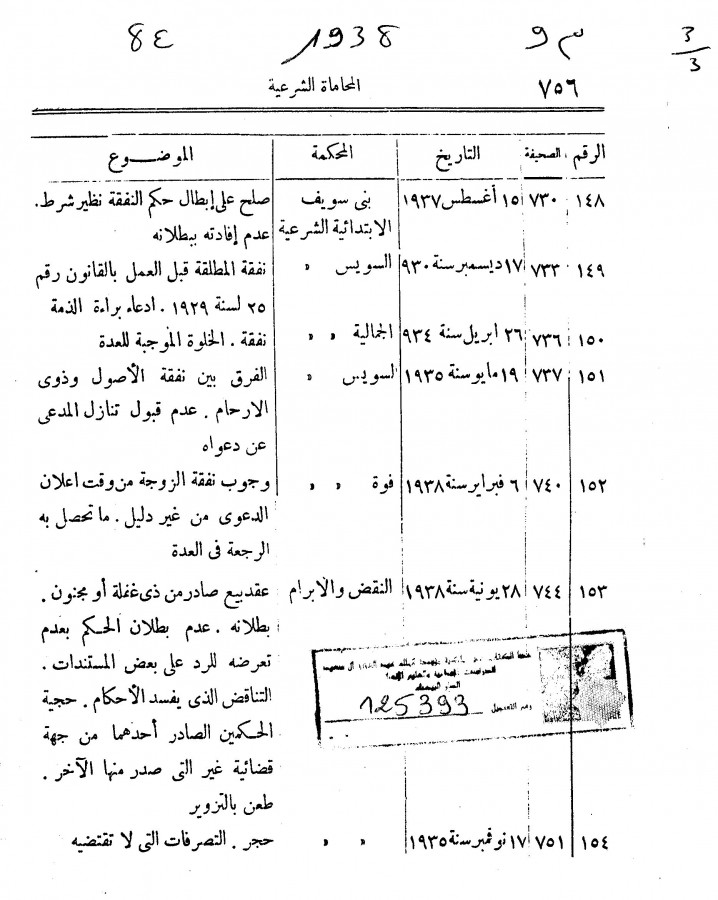 8٤ 1938 ٩ س 3/3
٧٥٦ المحاماة الشرعية
الرقم الصحيفة التاريخ المحكمة الموضـــوع
١٤٨ ٧٣٠ ١٥ أغسطس ١٩٣٧ بنى سويف صلح على إبطال حكم النفقة نظير شرط.
الابتدائية الشرعية عدم إفادته ببطلانه
١٤٩ ٧٣٣ ١٧ ديسمبر سنة ٩٣٠ السويس » نفقة المطلقة قبل العمل بالقانون رقم
٢٥ لسنة ١٩٢٩ . ادعاء براءة الذمة
١٥٠ ٧٣٦ ٢٦ ابريل سنة ٩٣٤ الجمالية » » نفقة . الخلوة الموجبة للعدة
١٥١ ٧٣٧ ١٩ مايو سنة ١٩٣٥ لسويس » الفرق بين نفقة الأصول وذوى
الارحام . عدم قبول تنازل المدعى
عن دعواه
١٥٢ ٧٤٠ ٦ فبراير سنة ١٩٣٨ فوة » » وجوب نفقة الزوجة من وقت اعلان
الدعوى من غير دليل . ما تحصل به
الرجعة فى العدة
١٥٣ ٧٤٤ ٢٨ يونية سنة ١٩٣٨ النقض والابرام عقد بيع صادر من ذى غفلة أو مجنون .
بطلانه . عدم بطلان الحكم بعدم
تعرضه للرد على بعض المستندات .
التناقض الذى يفسد الأحكام . حجية
الحكمين الصادر أحدهما من جهة
قضائية غير التى صدر منها الآخر .
طعن بالتزوير
١٥٤ ٧٥١ ١٧ نوفمبر سنة ١٩٣٥ » » حجر . التصرفات التى لا تقتضيه
رقم التسجيل 125393